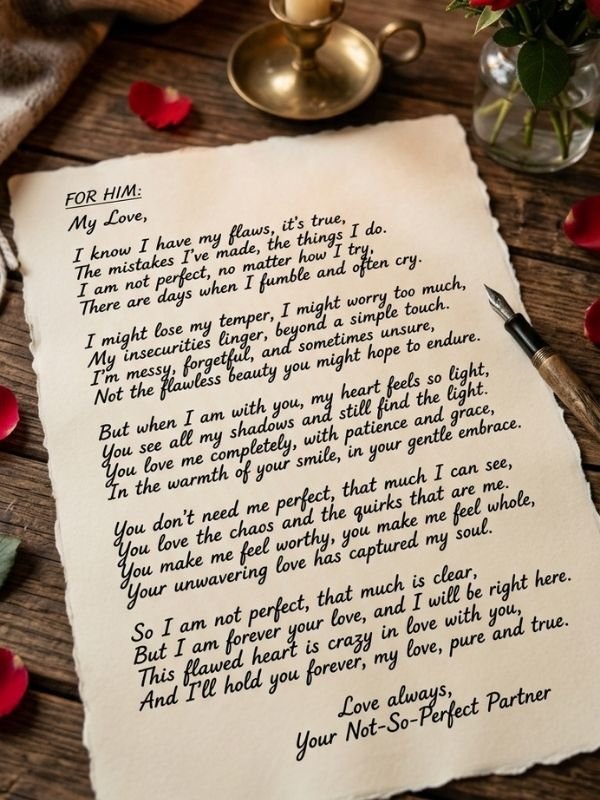 FOR HIM:
My Love,
I know I have my flaws, it's true,
The mistakes I've made, the things I do.
I am not perfect, no matter how I try,
There are days when I fumble and often cry.
I might lose my temper, I might worry too much,
My insecurities linger, beyond a simple touch.
I'm messy, forgetful, and sometimes unsure,
Not the flawless beauty you might hope to endure.
But when I am with you, my heart feels so light,
You see all my shadows and still find the light.
You love me completely, with patience and grace,
In the warmth of your smile, in your gentle embrace.
You don't need me perfect, that much I can see,
You love the chaos and the quirks that are me.
You make me feel worthy, you make me feel whole,
Your unwavering love has captured my soul.
So I am not perfect, that much is clear,
But I am forever your love, and I will be right here.
This flawed heart is crazy in love with you,
And I'll hold you forever, my love, pure and true.
Love always,
Your Not-So-Perfect Partner